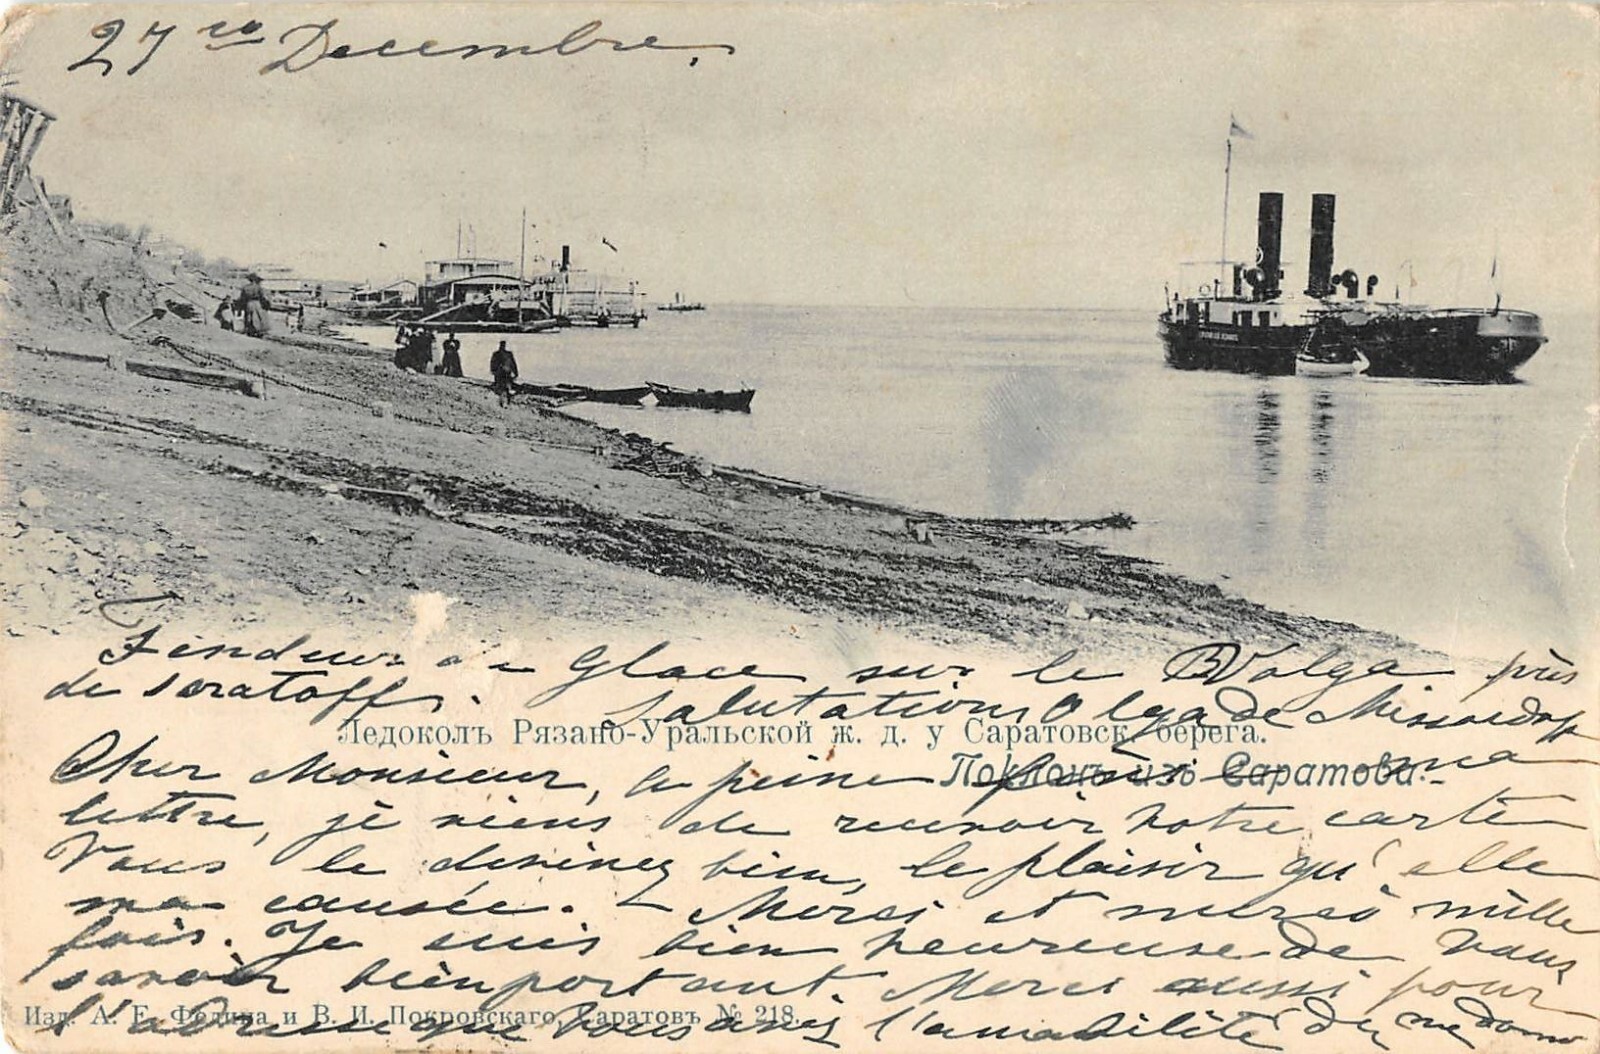 27 ro Decembre.
Fendeur de Glace sur le Volga près
de Saratoff. Salutations Olga de
Ледоколъ Рязано-Уральской ж. д. у Саратовск. берега.
Cher Monsieur, a peine ma
Поклонъ изъ Саратова.
lettre, je viens de recevoir votre carte
Vous le devinez bien, le plaisir qu'elle
ma causée. Merci et merci mille
fois. Je suis bien heureuse de vous
savoir bien portant. Merci aussi pour
Изд. А. Е. Федина и В. И. Покровскаго, Саратовъ № 218.
l'adresse que vous avez l'amabilité du me